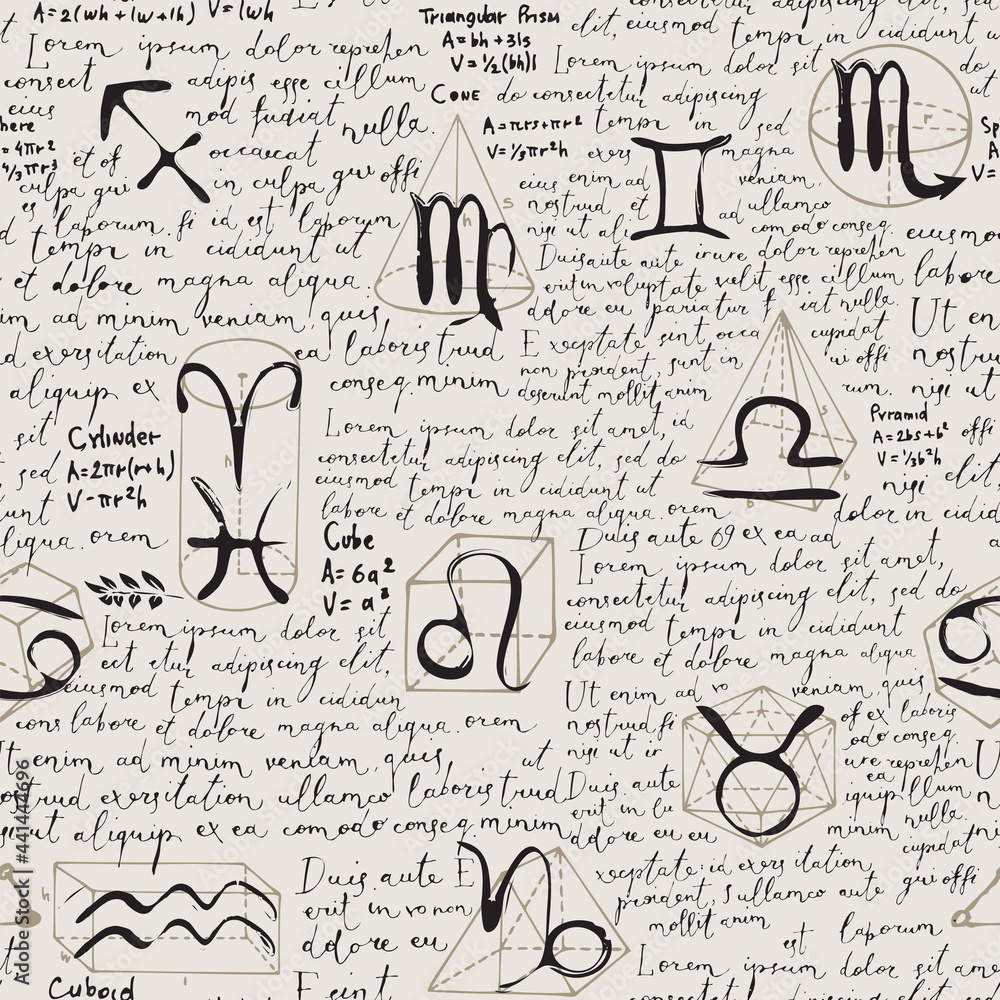 A=2(wh+lw+lh) V=lwh
Triangular Prism
A=bh+3ls
V=½(bh)l
elit, eiusmod tempr in cididunt u
Lorem ipsum dolor reprehen
Lorem ipsum dolor sit
do
consect
adipis esse cillum
Cone
do consectetur adipiscing
ut
eius
mod fugiat nulla.
A=πrs+πr²
V=⅓πr²h
tempr in sed
here
= 4πr²
4/3πr³
Sp
A
V=
et of
occaecat
exers
magna
culpa gui
in culpa gui offi
eius enim ad
veniam,
es
laborum. fi id est laborum
nostrud et
ad ullamco
nisi ut ali
comodo conseq.
eiusmo
d tempr in cididunt ut
Duis aute aute irure dolor reprehen
et dolore magna aliqua.
erit in voluptate velit esse cillum
labore
dolore eu pariatur f iat nulla.
im ad minim veniam, quis
Ut en
d exersitation
ea laboris trud
Exceptate sint occa
cupidat
nostru
non proident, sunt in
ui offi
aliquip ex
conseq. minim
deserunt mollit anim
rum.
nisi ut
sit
Cylinder
A=2πr(r+h)
V-πr²h
Lorem ipsum dolor sit amet, id
Pyramid
A=2bs+b²
V=⅓b²h
offi
sed
consectetur adipiscing elit, sed do
elit,
unt
eiusmod tempr in cididunt ut
nisi
labore et dolore magna aliqua. orem
dolor in cidid
liqua. orem
Cube
A=6a²
V=a³
Duis aute 69 ex ea ad
Lorem ipsum dolor sit amet,
consectetur adipiscing elit, sed do
Lorem ipsum dolor sit
eiusmod tempr in cididunt
ect etur adipiscing elit,
labore et dolore magna aliqua
eiusmod
tempr in cididun
Ut enim ad vo
veniam, quis
cons labore et dolore magna aliqua. orem
nostrud fi
of ex laboris
odo conseq
Ut enim ad minim veniam, quis
ut
nisi ut ir
ure reprehen
U
ostrud exersitation ullamco laboris trud
Duis aute
ea
iquip llum
erit in lu
nulla.
si ut aliquip ex ea comodo conseq. minim
dolore eu eu
minim
cupidat
Duis aute E
exceptate: id exers itation
erit in vo non
proident, s ullamco aute
gui offi
dolore eu
mollit anim
est
laborum
Lorem ipsum dolor sit amet,
Cuboid
E sint
h
s
h
s
b
b
r
r
h
w
Adobe Stock | #441444696